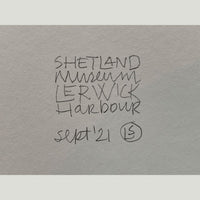 SHETLAND
Museum
LERWICK
Harbour
sept '21 LS